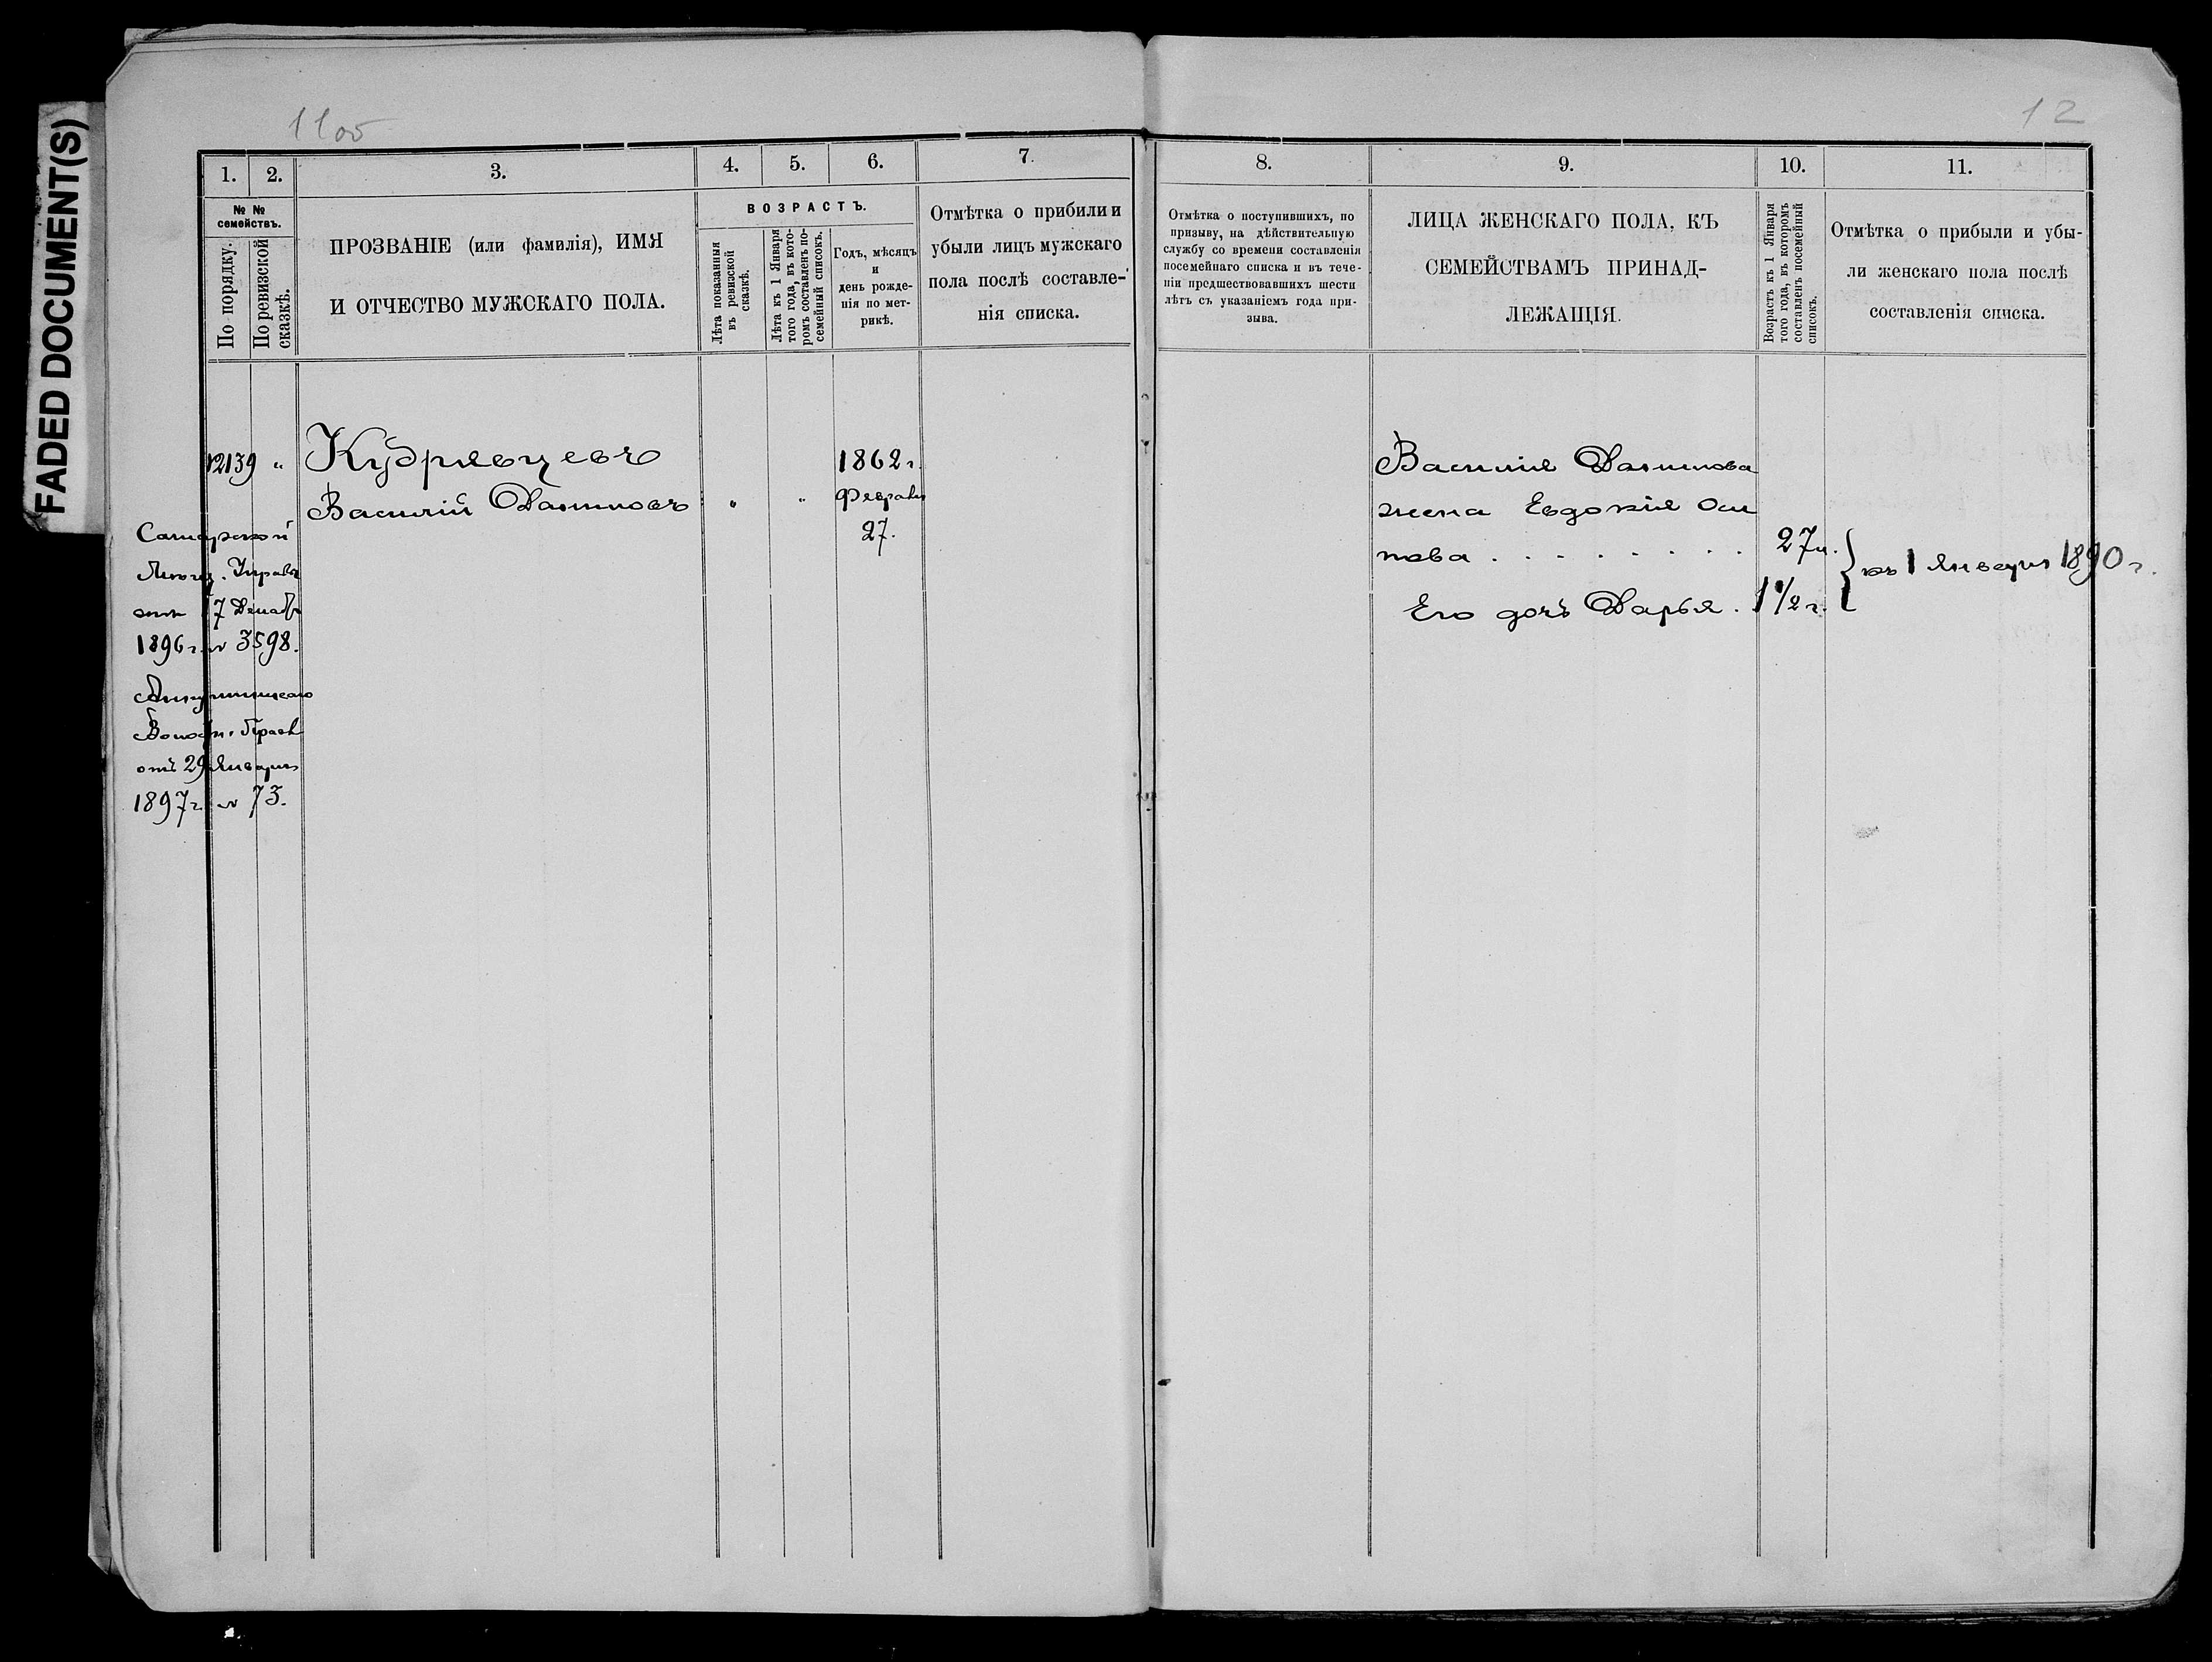 FADED DOCUMENT(S)
1105
12
1. 2. 3. 4. 5. 6. 7.
8. 9. 10. 11.
№ №
семействъ.
По порядку.
По ревизской
сказкѣ.
ПРОЗВАНІЕ (или фамилія), ИМЯ
И ОТЧЕСТВО МУЖСКАГО ПОЛА.
ВОЗРАСТЪ.
Лѣта показанныя
въ ревизской
сказкѣ.
Лѣта къ 1 Января
того года, въ кото-
ромъ составленъ по-
семейный списокъ.
Годъ, мѣсяцъ
и
день рожде-
нія по мет-
рикѣ.
Отмѣтка о прибыли и
убыли лицъ мужскаго
пола послѣ составле-
нія списка.
Отмѣтка о поступившихъ, по
призыву, на дѣйствительную
службу со времени составленія
посемейнаго списка и въ тече-
ніи предшествовавшихъ шести
лѣтъ съ указаніемъ года при-
зыва.
ЛИЦА ЖЕНСКАГО ПОЛА, КЪ
СЕМЕЙСТВАМЪ ПРИНАД-
ЛЕЖАЩІЯ.
Возрастъ къ 1 Января
того года, въ которомъ
составленъ посемейный
списокъ.
Отмѣтка о прибыли и убы-
ли женскаго пола послѣ
составленія списка.
12139 "
Кудрявцевъ
Василій Даниловъ " "
1862 г.
Февраля
27.
Самарской
Управы
17 Декаб
1896 г. № 3598.
Волост. Прав
отъ 29 Января
1897 г. № 73.
Василія Данилова
жена Евдокія Оси
пова . . . . . . . . 27 л.
Его дочь Дарья. 1 1/2 г.
къ 1 Января 1890 г.